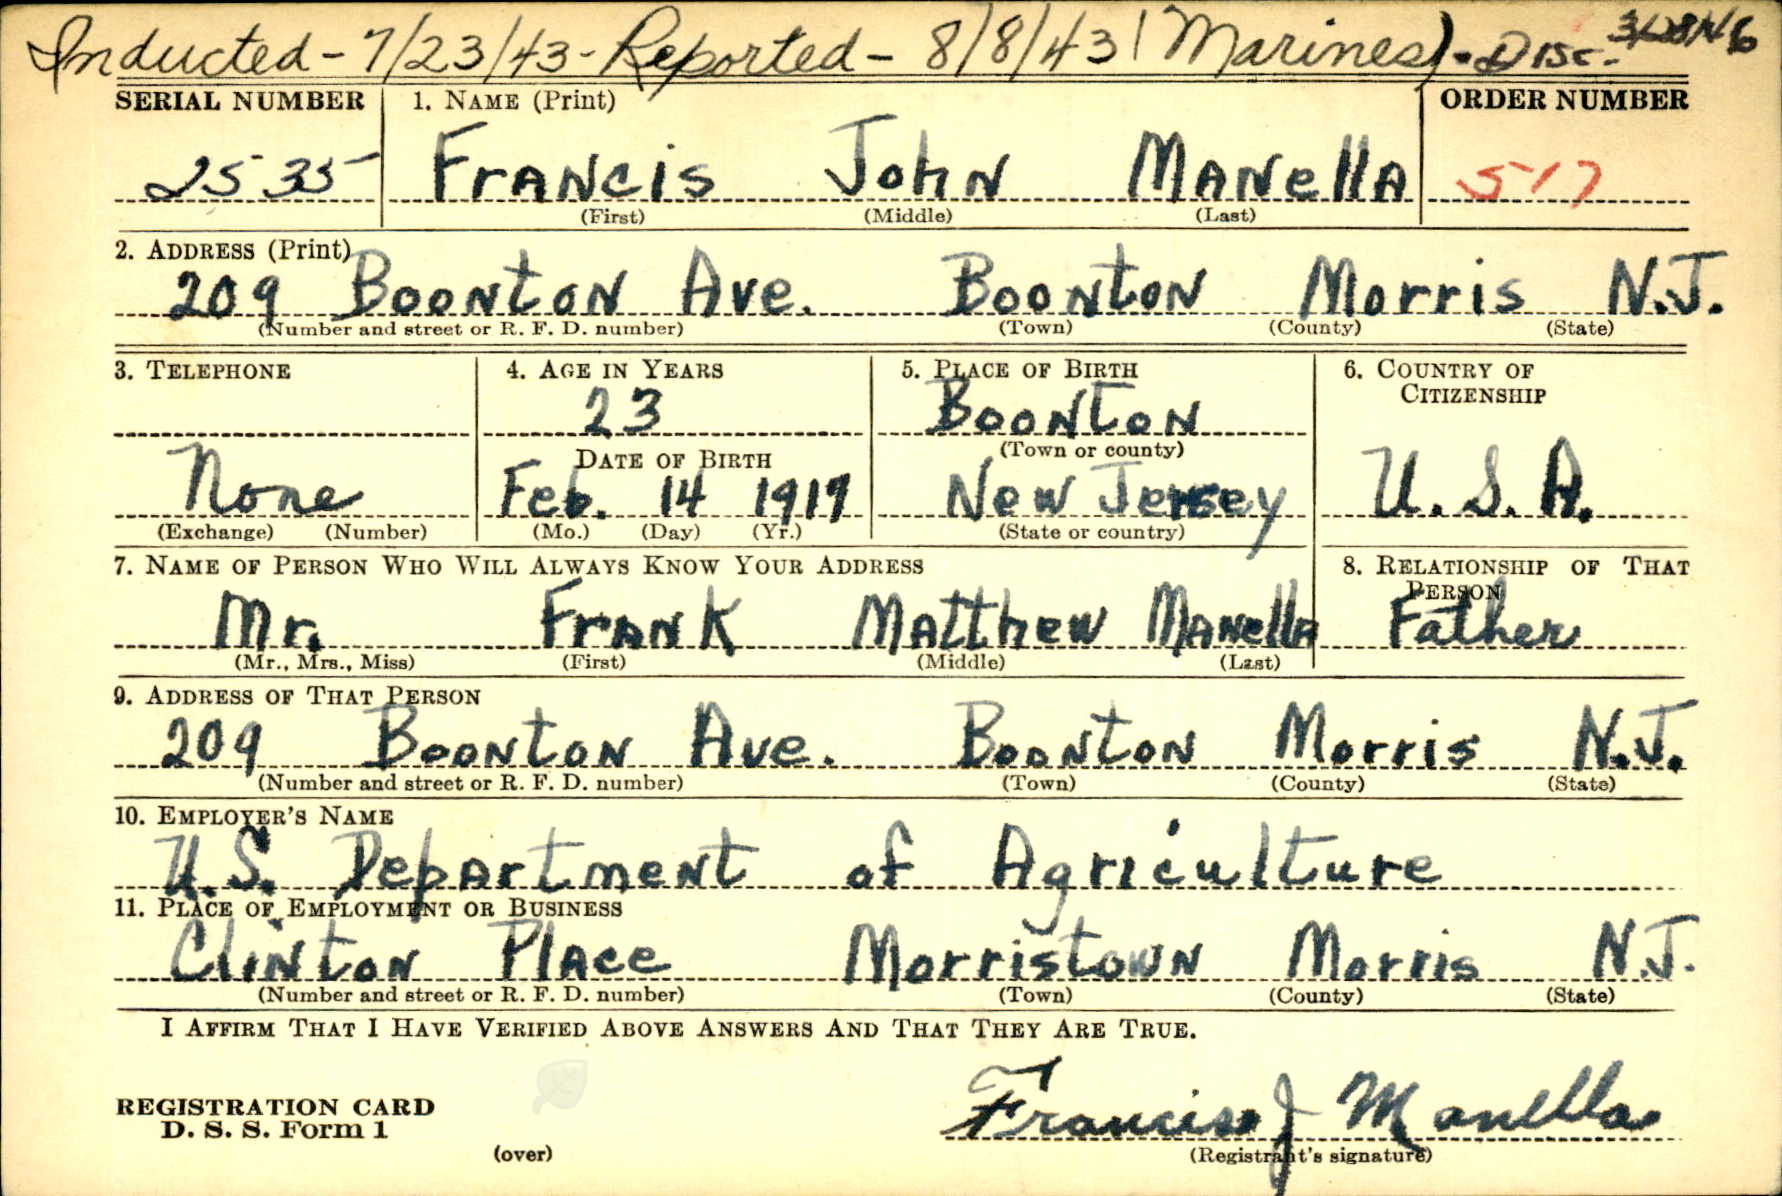 Inducted - 7/23/43 - Reported - 8/8/43 (Marines). Disc.
SERIAL NUMBER 1. NAME (Print) ORDER NUMBER
2535 Francis John Manella 517
(First) (Middle) (Last)
2. ADDRESS (Print)
209 Boonton Ave. Boonton Morris N.J.
(Number and street or R. F. D. number) (Town) (County) (State)
3. TELEPHONE 4. AGE IN YEARS 5. PLACE OF BIRTH 6. COUNTRY OF
CITIZENSHIP
23 Boonton
DATE OF BIRTH (Town or county)
None Feb. 14 1917 New Jersey U. S. A.
(Exchange) (Number) (Mo.) (Day) (Yr.) (State or country)
7. NAME OF PERSON WHO WILL ALWAYS KNOW YOUR ADDRESS 8. RELATIONSHIP OF THAT
PERSON
Mr. Frank Matthew Manella Father
(Mr., Mrs., Miss) (First) (Middle) (Last)
9. ADDRESS OF THAT PERSON
209 Boonton Ave. Boonton Morris N.J.
(Number and street or R. F. D. number) (Town) (County) (State)
10. EMPLOYER'S NAME
U.S. Department of Agriculture
11. PLACE OF EMPLOYMENT OR BUSINESS
Clinton Place Morristown Morris N.J.
(Number and street or R. F. D. number) (Town) (County) (State)
I AFFIRM THAT I HAVE VERIFIED ABOVE ANSWERS AND THAT THEY ARE TRUE.
REGISTRATION CARD
D. S. S. Form 1
Francis J Manella
(over) (Registrant's signature)